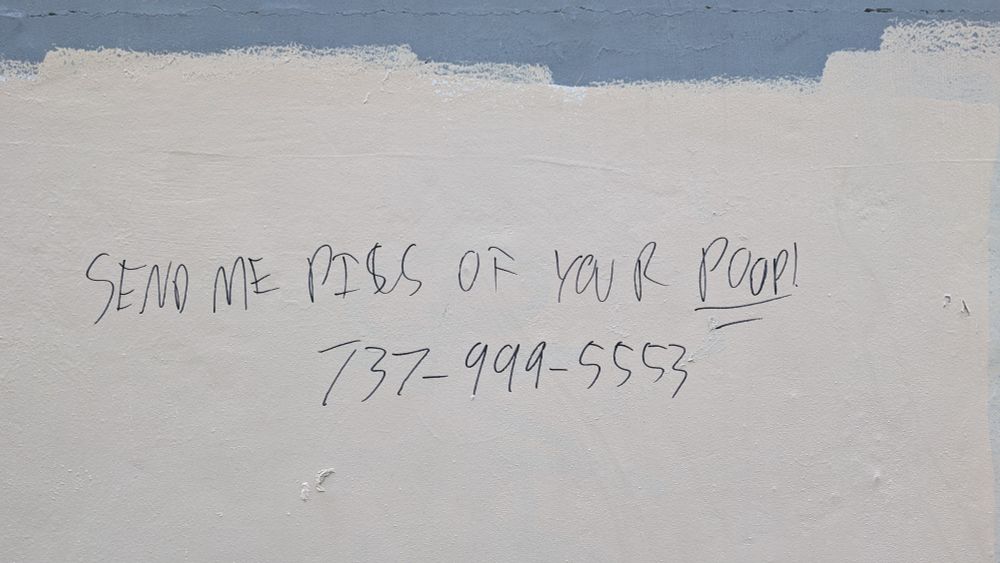 SEND ME PICS OF YOUR POOP!
737-999-5553